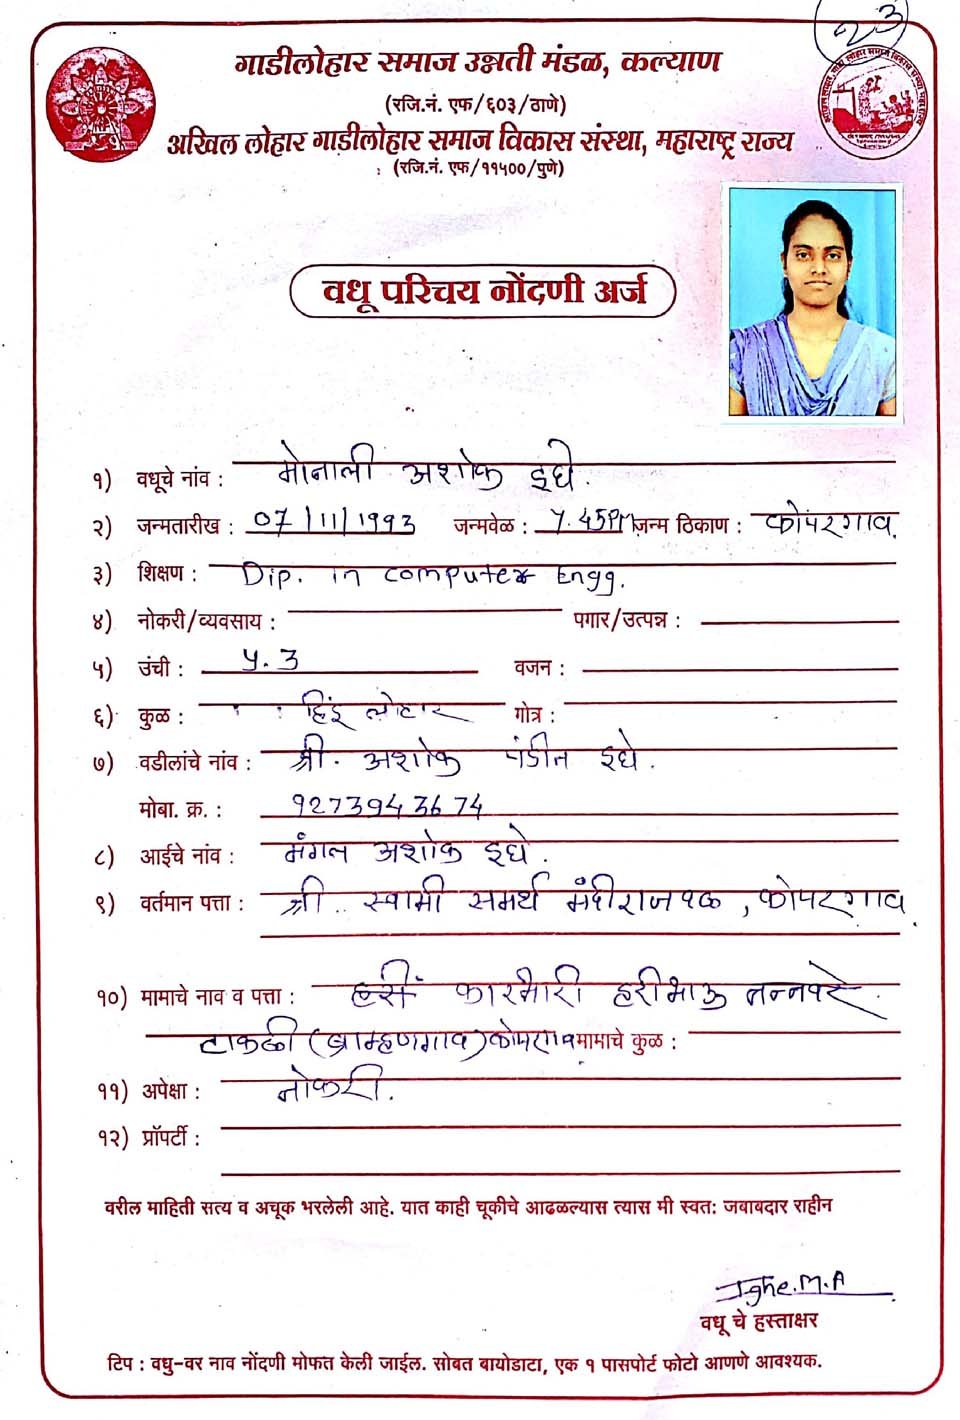 23
गाडीलोहार समाज उन्नती मंडळ, कल्याण
(रजि.नं. एफ/६०३/ठाणे)
अखिल लोहार गाडीलोहार समाज विकास संस्था, महाराष्ट्र राज्य
(रजि.नं. एफ/११५००/पुणे)
वधू परिचय नोंदणी अर्ज
१) वधूचे नांव : मोनाली अशोक इघे.
२) जन्मतारीख : 07/11/1993 जन्मवेळ : 7.45PM जन्म ठिकाण : कोपरगाव.
३) शिक्षण : Dip. in computer Engg.
४) नोकरी/व्यवसाय : पगार/उत्पन्न :
५) उंची : ५.3 वजन :
६) कुळ : हिंदू लोहार गोत्र :
७) वडीलांचे नांव : श्री. अशोक पंडीत इघे.
मोबा. क्र. : ९273943674
८) आईचे नांव : मंगल अशोक इघे.
९) वर्तमान पत्ता : श्री. स्वामी समर्थ मंदीराजवळ, कोपरगाव.
१०) मामाचे नाव व पत्ता : कारभारी हरीभाऊ
टाकळी (ब्राम्हणगाव) कोपरगाव मामाचे कुळ :
११) अपेक्षा : नोकरी.
१२) प्रॉपर्टी :
वरील माहिती सत्य व अचूक भरलेली आहे. यात काही चूकीचे आढळल्यास त्यास मी स्वतः जबाबदार राहीन
Ighe.M.A
वधू चे हस्ताक्षर
टिप : वधु-वर नाव नोंदणी मोफत केली जाईल. सोबत बायोडाटा, एक १ पासपोर्ट फोटो आणणे आवश्यक.